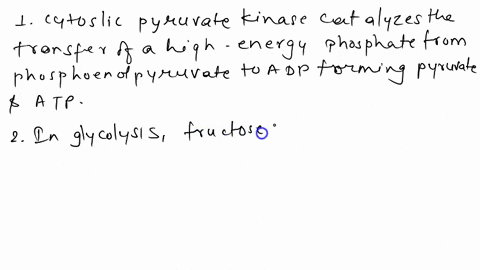 1. cytoslic pyruvate kinase catalyzes the
transfer of a high-energy phosphate from
phosphoenol pyruvate to ADP forming pyruvate
& ATP.
2. In glycolysis, fructose